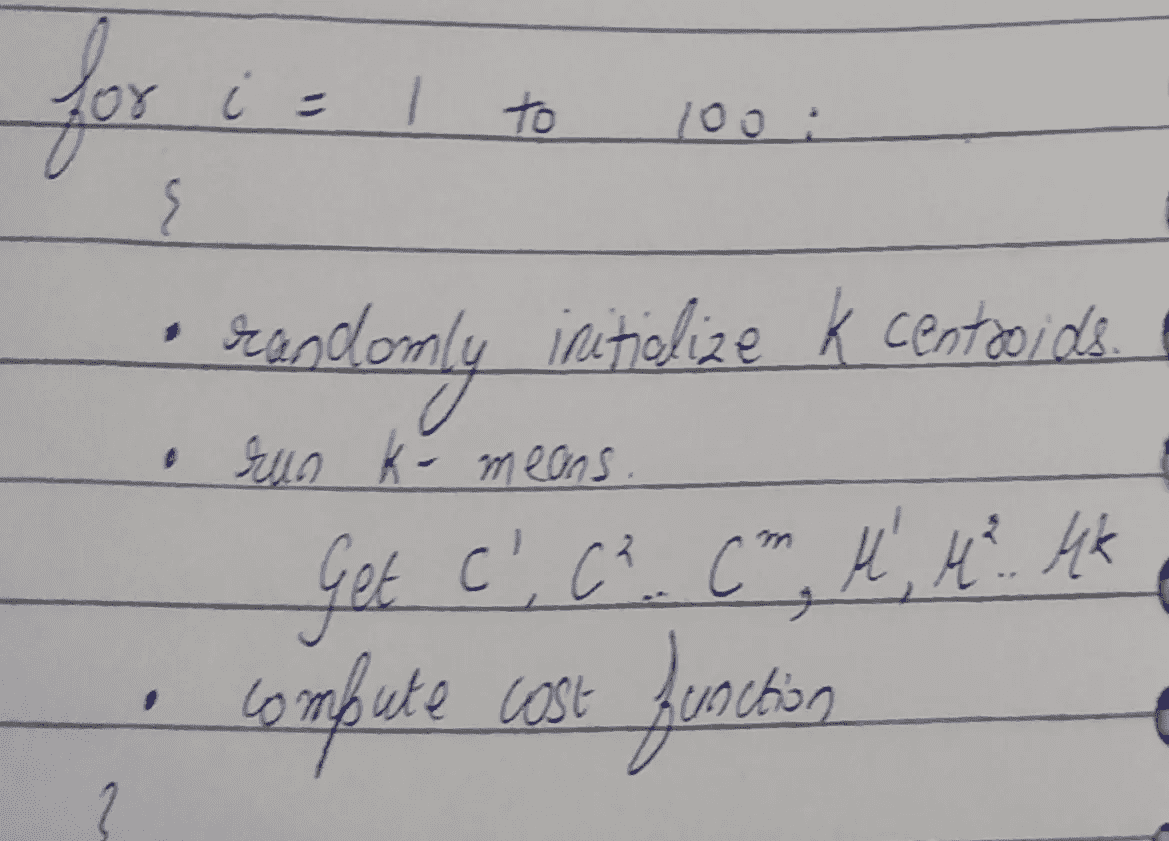 for i = 1 to 100 :
{
• randomly initialize k centroids.
• run k- means.
Get C¹, C² .. Cᵐ, μ¹, μ² .. μk
• compute cost function
}